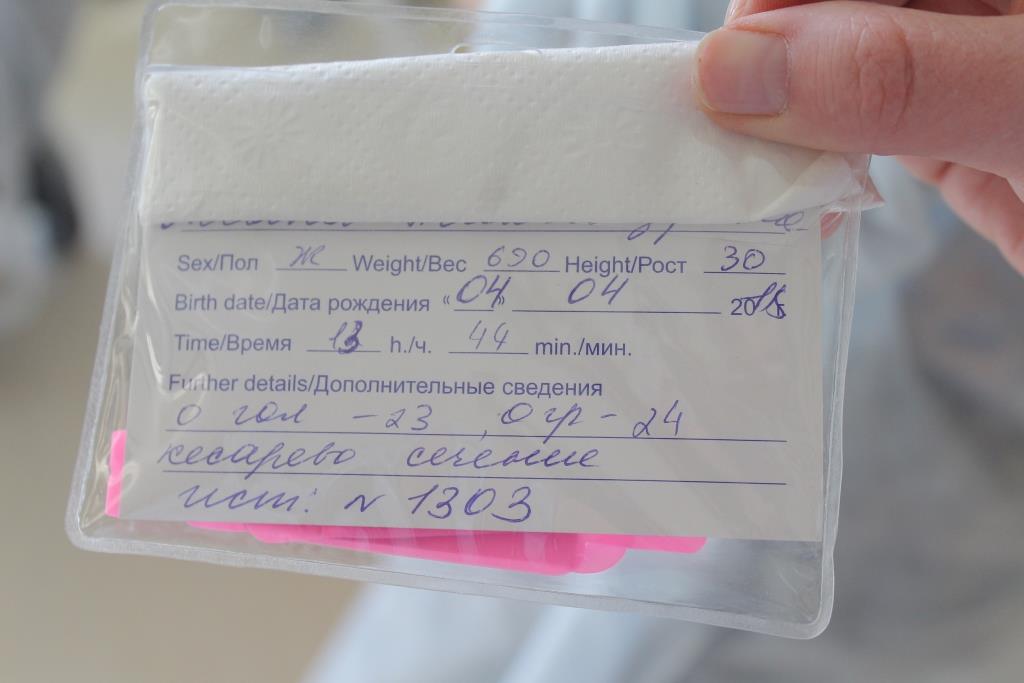 Sex/Пол ж Weight/Вес 690 Height/Рост 30
Birth date/Дата рождения «04» 04 2018
Time/Время 13 h./ч. 44 min./мин.
Further details/Дополнительные сведения
о гол - 23, О гр - 24
кесарево сечение
ист: N 1303